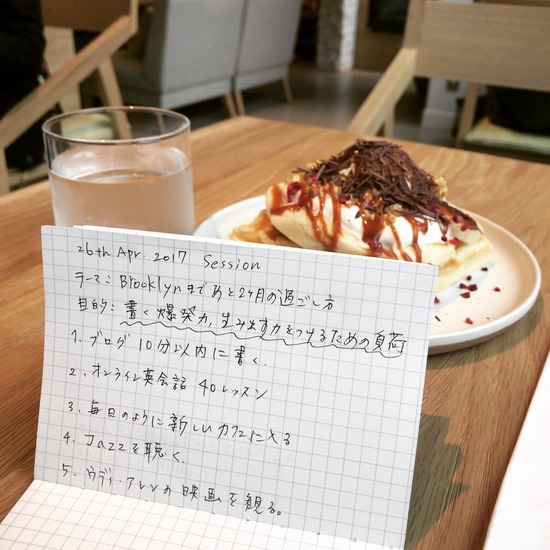 26th Apr. 2017 Session
テーマ: Brooklynまであと2ヶ月の過ごし方
目的: 書く爆発力,生み出す力をつけるための負荷
1. ブログ 10分以内に書く.
2. オンライン英会話 40レッスン
3. 毎日のように新しいカフェに入る
4. Jazzを聴く.
5. ウディ・アレンの映画を観る。